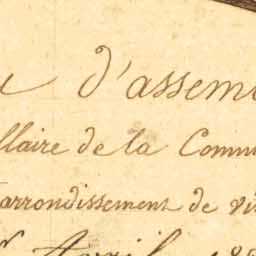 d'assem
llaire de la Comm
arrondissement de vi
Avril